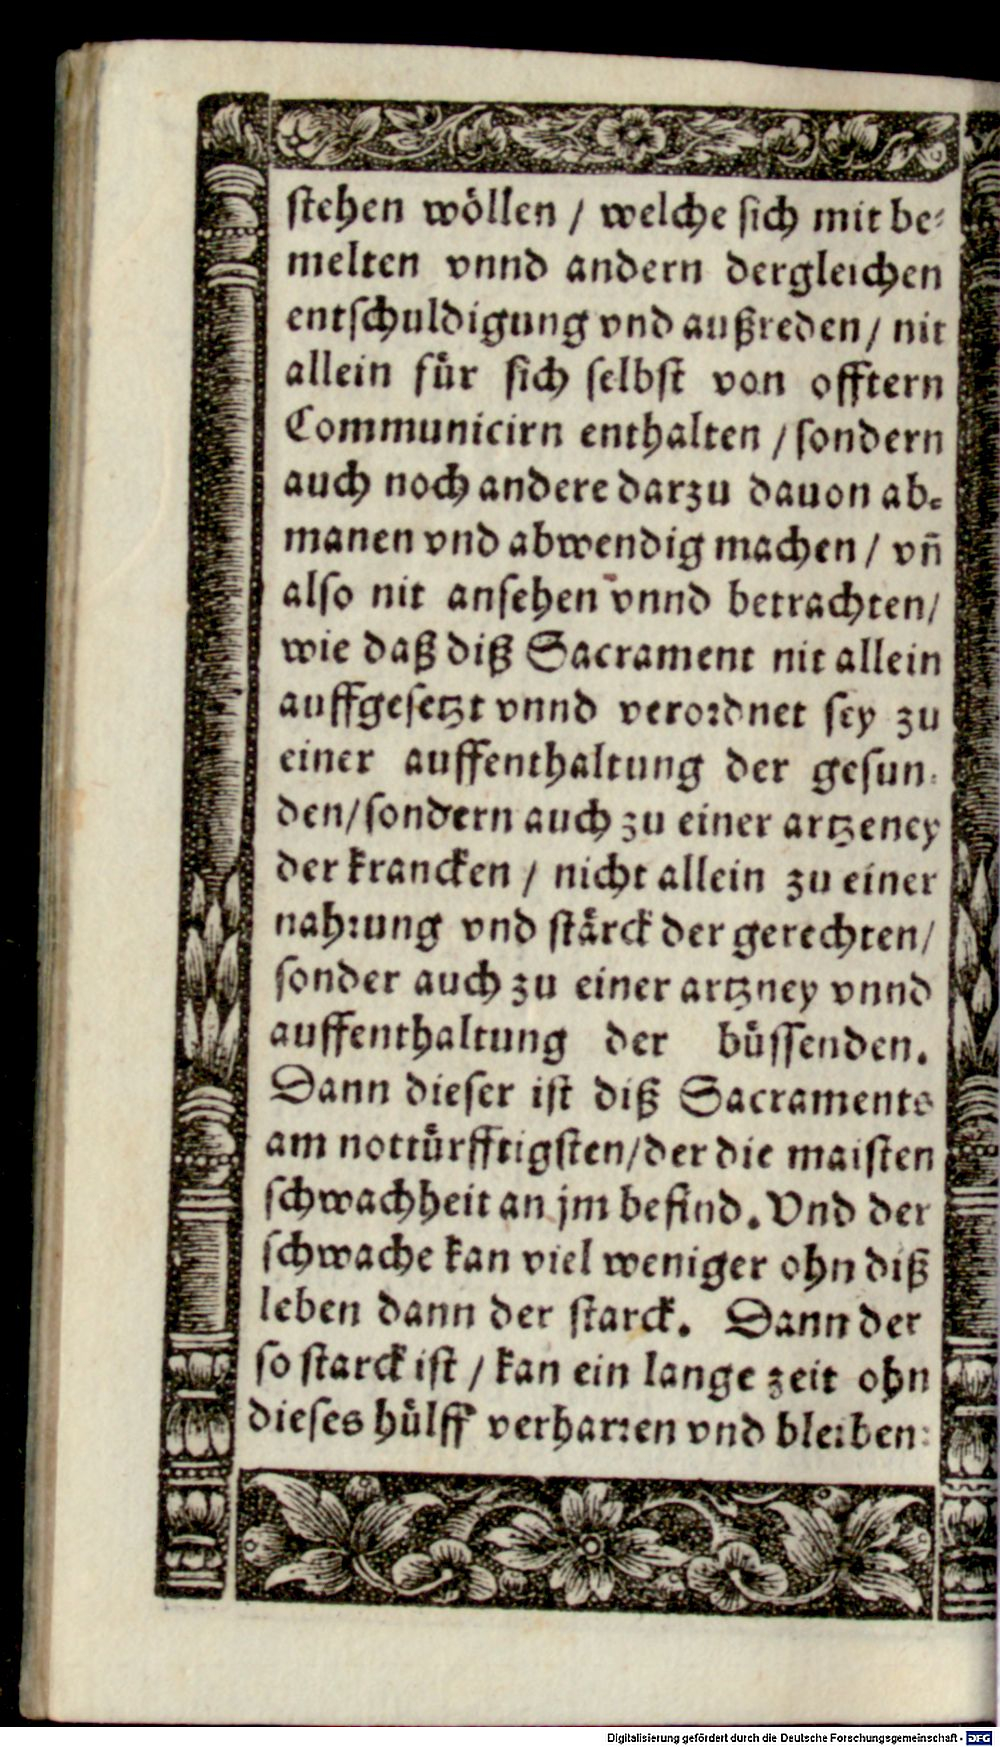 stehen wöllen / welche sich mit be-
melten vnnd andern dergleichen
entschuldigung vnd außreden / nit
allein für sich selbst von offtern
Communicirn enthalten / sondern
auch noch andere darzu dauon ab-
manen vnd abwendig machen / vñ
also nit ansehen vnnd betrachten/
wie daß diß Sacrament nit allein
auffgesetzt vnnd verordnet sey zu
einer auffenthaltung der gesun-
den/sondern auch zu einer artzeney
der krancken / nicht allein zu einer
nahrung vnd stärck der gerechten/
sonder auch zu einer artzney vnnd
auffenthaltung der büssenden.
Dann dieser ist diß Sacraments
am nottürfftigsten/der die maisten
schwachheit an jm befind. Vnd der
schwache kan viel weniger ohn diß
leben dann der starck. Dann der
so starck ist / kan ein lange zeit ohn
dieses hülff verharren vnd bleiben:
Digitalisierung gefördert durch die Deutsche Forschungsgemeinschaft - DFG